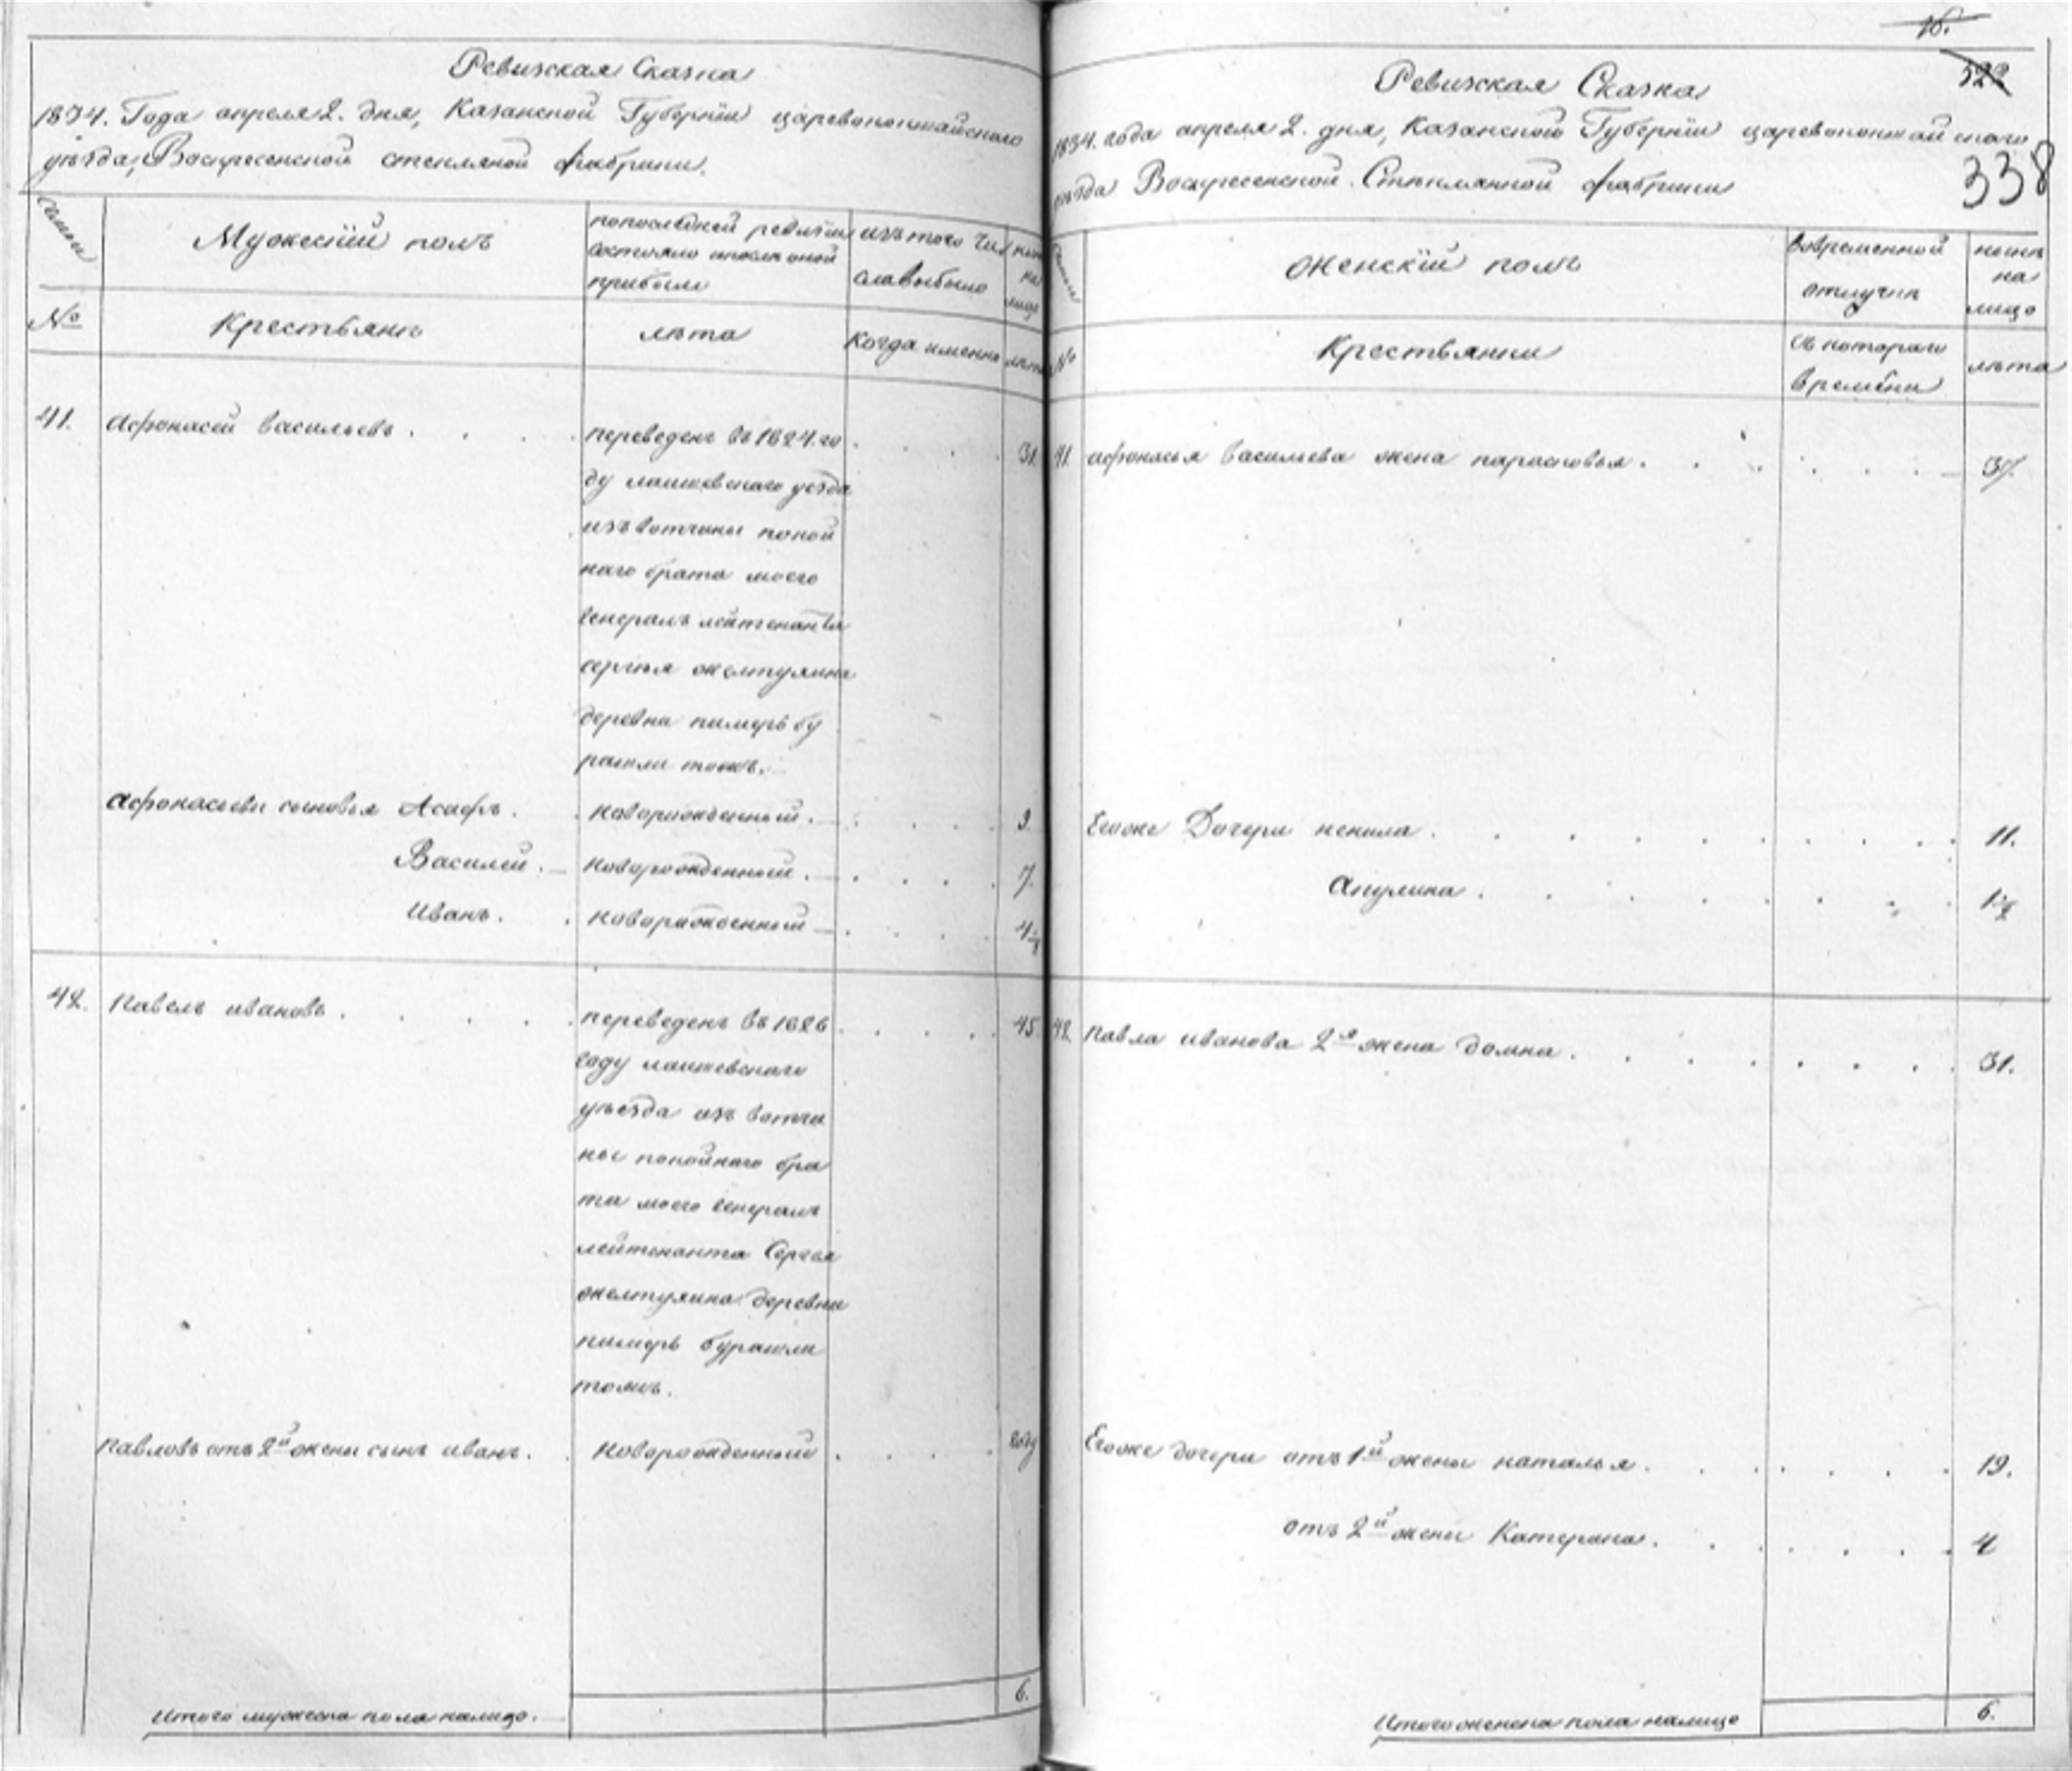 Ревижская Сказка
1834. Года апреля 2. дня, Казанской Губернiи царевококшайскаго
уѣзда, Воскресенской стекляной фабрики.
Семьи
Мужескiй полъ
попоследней ревизiи
состояло ипосле оной
прибыло
изъ того чи
славыбыло
ныне
на
лицо
№
Крестьяне
лѣта
Когда именно
лѣта
41.
Афонасей васильевъ.
переведенъ въ 1824. го
31.
ду лаишевскаго уезда
изъ вотчины покой
наго брата моего
генералъ лейтенанта
сергѣя желтухина
деревни кимерь бу
рашли тожъ.
Афонасьевы сыновья Асафъ.
новорожденный.
9.
Василей.
новорожденный.
7.
Иванъ.
новорожденный
42.
Павелъ ивановъ.
переведенъ въ 1826
45.
году лаишевскаго
уѣезда изъ вотчи
ны покойнаго бра
та моего генералъ
лейтенанта Сергея
желтухина деревни
кимерь бурашли
тожъ.
павловъ отъ 2й жены сынъ иванъ.
новорожденный
году
Итого мужеска пола налицо.
6.
16.
522
338
Ревижская Сказка
1834. года апреля 2. дня, Казанской Губернiи царевококшайскаго
уѣзда Воскресенской Стеклянной фабрики
Семьи
Женскiй полъ
вовременной
отлучке
ныне
на
лицо
№
Крестьянки
съ котораго
времени
лѣта
41.
афонасья васильева жена парасковья.
37.
Егоже Дочери ненила.
11.
Акулина.
42.
павла иванова 2я жена домна.
31.
Егоже дочери отъ 1й жены наталья.
19.
отъ 2й жены Катерина.
4
Итого женска пола налицо
6.